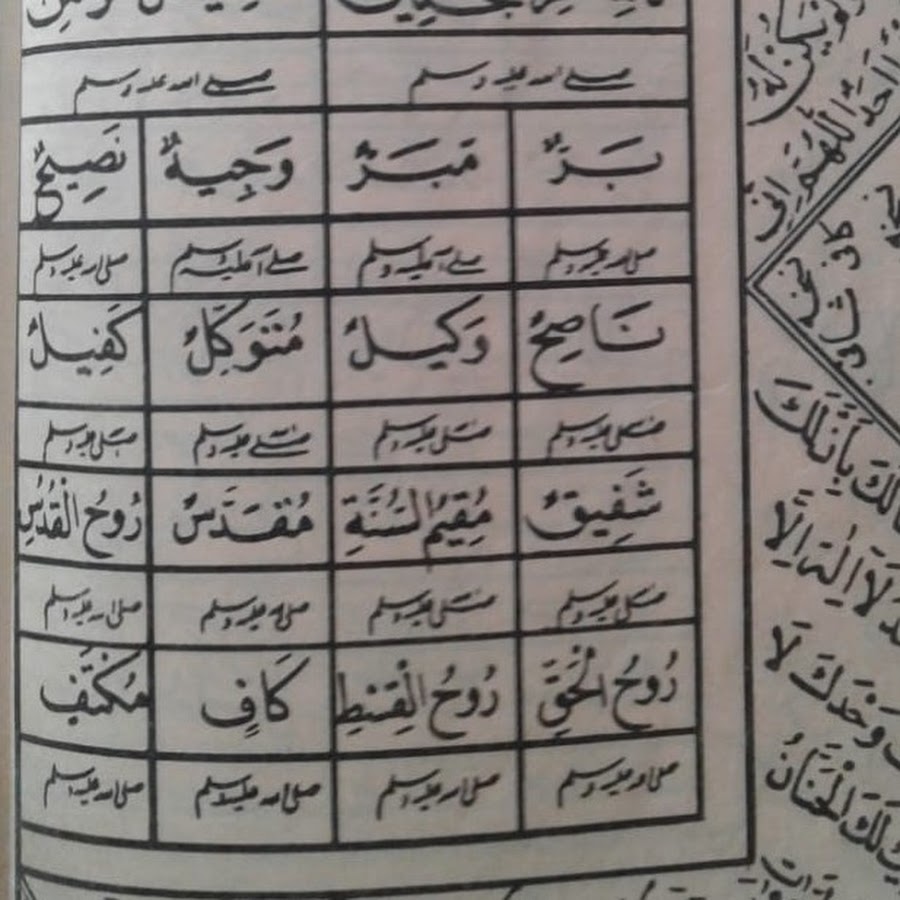 صلے اللہ علیہ وسلم صلے اللہ علیہ وسلم
بَرٌّ مَبَرٌّ وَجِيهٌ نَصِيحٌ
صلی اللہ علیہ وسلم صلے اللہ علیہ وسلم صلے اللہ علیہ وسلم صلی اللہ علیہ وسلم
نَاصِحٌ وَكِيلٌ مُتَوَكِّلٌ كَفِيلٌ
صلی اللہ علیہ وسلم صلی اللہ علیہ وسلم صلے اللہ علیہ وسلم صلی اللہ علیہ وسلم
شَفِيقٌ مُقِيمُ السُّنَّةِ مُقَدَّسٌ رُوحُ الْقُدُسِ
صلی اللہ علیہ وسلم صلی اللہ علیہ وسلم صلی اللہ علیہ وسلم صلی اللہ علیہ وسلم
رُوحُ الْحَقِّ رُوحُ الْقِسْطِ كَافٍ مُكْتَفٍ
صلی اللہ علیہ وسلم صلی اللہ علیہ وسلم صلی اللہ علیہ وسلم صلی اللہ علیہ وسلم
أَحَدٌ اللّٰهُمَّ اِنِّي
بِأَنَّ لَكَ
لَا اِلٰهَ اِلَّا
وَحْدَكَ لَا
لَكَ الْحَنَّانُ